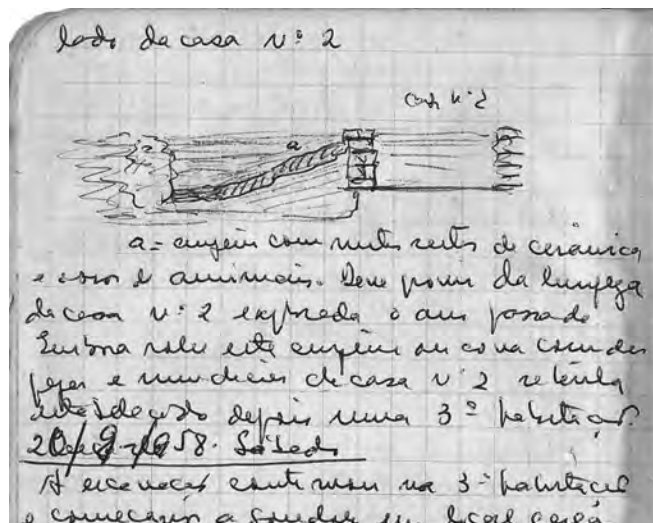 lado da casa nº 2
casa nº 2
a
a = com muitos restos de cerâmica
e ossos de animais. Deve provir da limpeza
da casa nº 2 explorada o ano passado
Embora sobre este ou cova com des
pejos e da casa nº 2 se tenha
depois uma 3ª habitação.
20/9/958. Sábado
A escavação continuou na 3ª habitação
e começaram a sondar um local